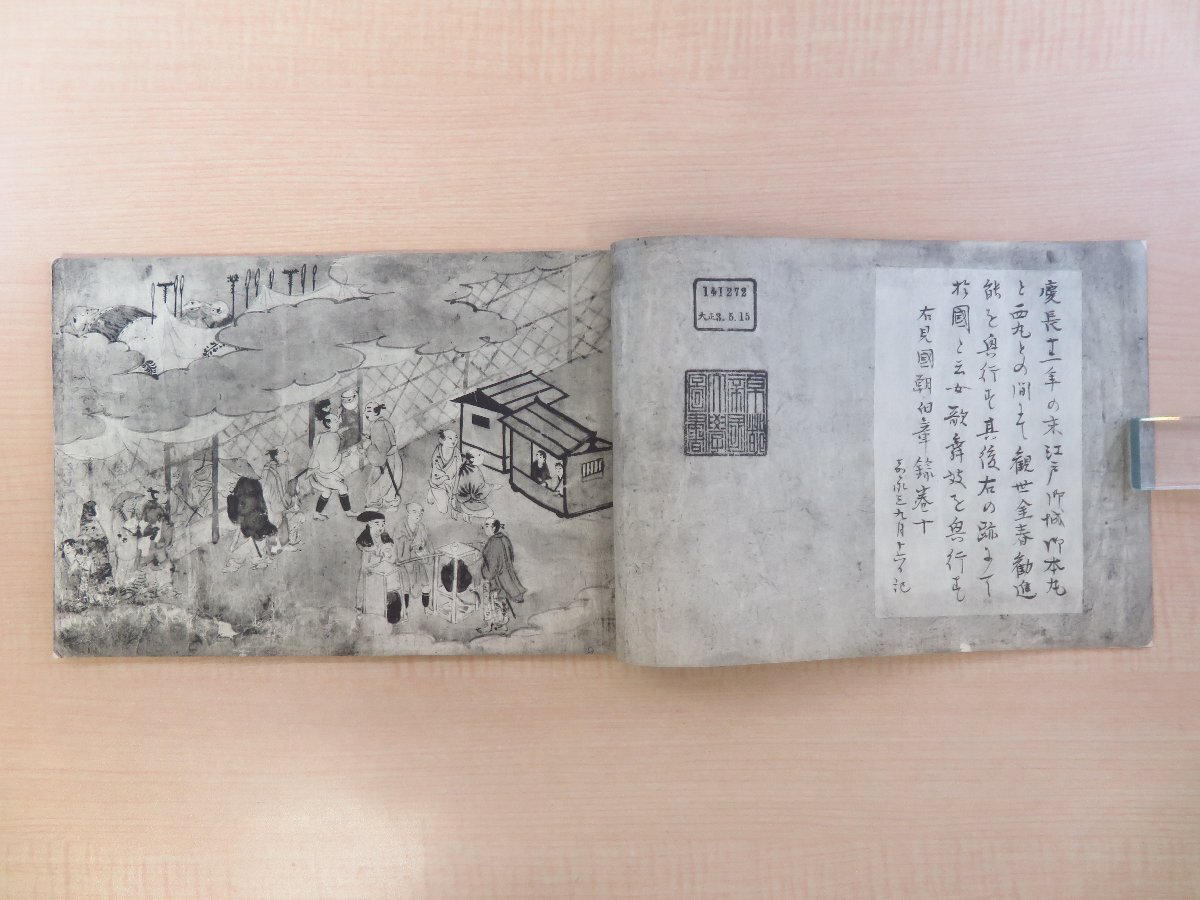 慶長十二年の末江戸御城御本丸
と西丸との間にて観世金春勧進
能を興行す其後右の跡にて
於國と云女歌舞妓を興行す
右見國朝旧章録巻十
九月十六日記
141272
大正3.5.15
東京
帝國
大學
圖書